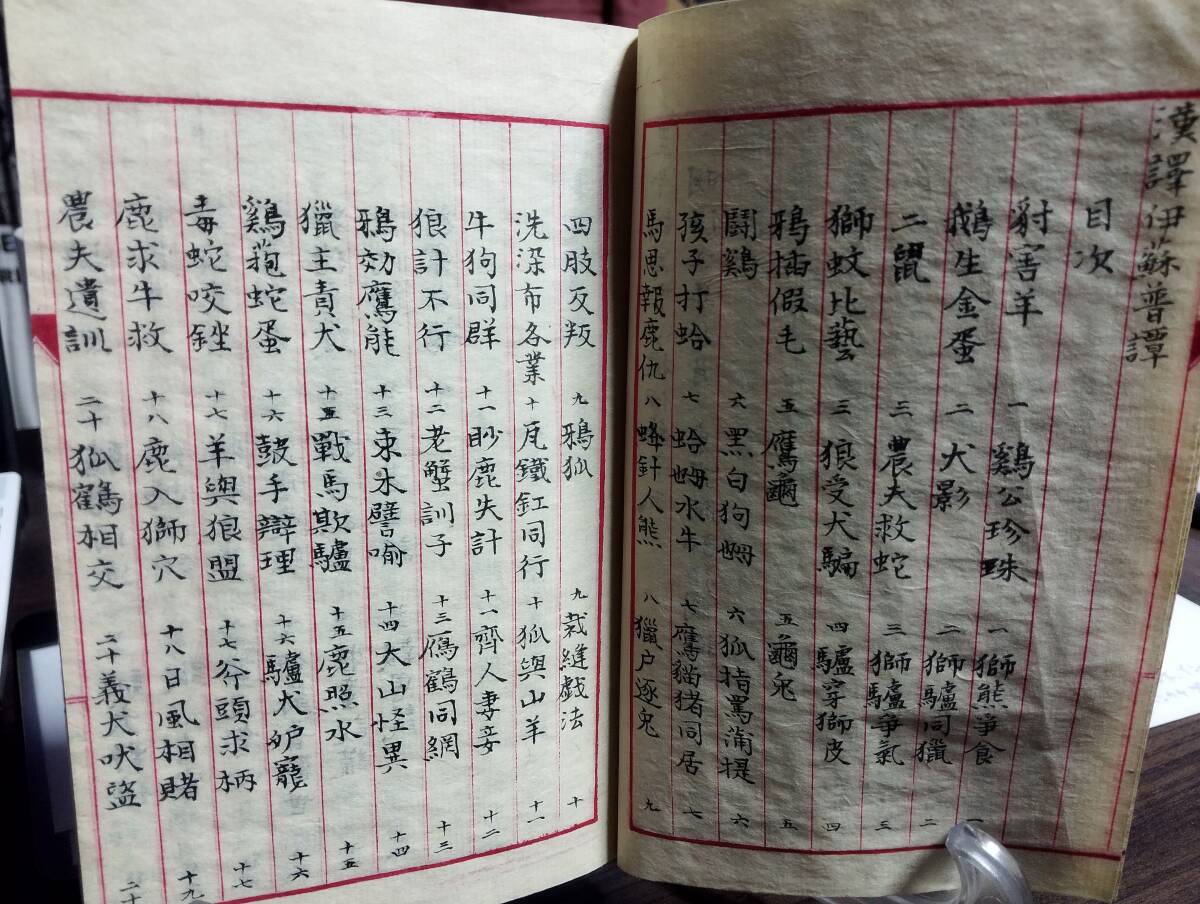 漢譯伊蘇普譚
目次
豺害羊 一 鷄公珍珠 一 獅熊爭食 一
鵝生金蛋 二 犬影 二 獅驢同獵 二
二鼠 三 農夫救蛇 三 獅驢爭氣 三
獅蚊比藝 三 狼受犬騙 四 驢穿獅皮 四
鴉插假毛 五 鷹龜 五 龜兔 五
鬪鷄 六 黑白狗姆 六 狐指罵蒲提 六
孩子打蛤 七 蛤姆水牛 七 鷹貓猪同居 七
馬思報鹿仇 八 蜂針人熊 八 獵户逐兔 九
四肢反叛 九 鴉狐 九 裁縫戯法 十
洗染布各業 十 瓦鐵缸同行 十 狐與山羊 十一
牛狗同群 十一 眇鹿失計 十一 齊人妻妾 十二
狼計不行 十二 老蟹訓子 十三 鴈鶴同網 十三
鴉効鷹能 十三 束木譬喻 十四 大山怪異 十四
獵主責犬 十五 戰馬欺驢 十五 鹿照水 十五
鷄菢蛇蛋 十六 鼓手辯理 十六 驢犬妒寵 十六
毒蛇咬銼 十七 羊與狼盟 十七 斧頭求柄 十七
鹿求牛救 十八 鹿入獅穴 十八 日風相賭 十九
農夫遺訓 二十 狐鶴相交 二十 義犬吠盜 二十